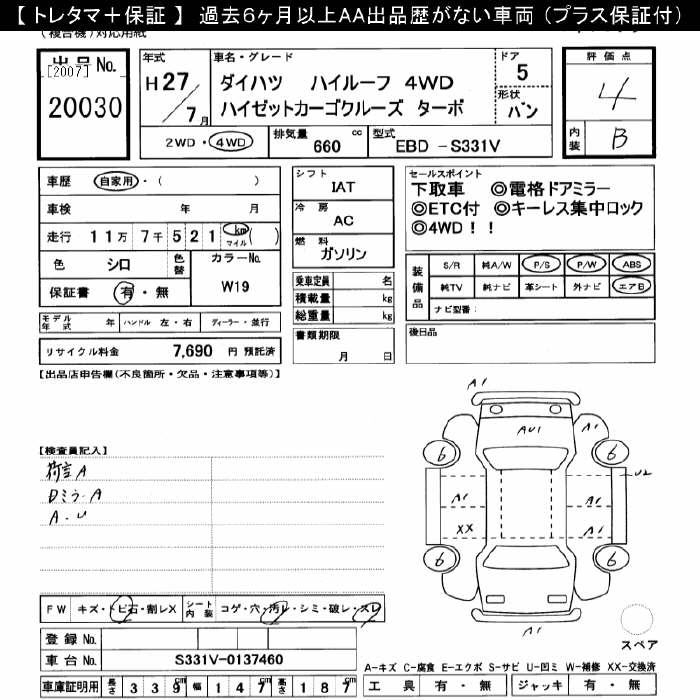 【 トレタマ＋保証 】 過去６ヶ月以上ＡＡ出品歴がない車両（プラス保証付）
(複合機)対応用紙
出品No.
[2007]
20030
年式
H 27/7月
車名・グレード
ダイハツ ハイルーフ 4WD
ハイゼットカーゴクルーズ ターボ
ドア
5
形状
バン
評価点
4
内装
B
2WD・4WD
排気量 660 cc
型式 EBD -S331V
車歴 自家用・( )
車検 年 月
走行 11万 7千 521 km マイル ( )
色 シロ 色替
カラーNo. W19
保証書 有・無
モデル年式 年 ハンドル 左・右 ディーラー・並行
リサイクル料金 7,690 円 預託済
シフト
IAT
冷房
AC
燃料
ガソリン
乗車定員 名
積載量 kg
総重量 kg
書類期限
月 日
セールスポイント
下取車 ◎電格ドアミラー
◎ETC付 ◎キーレス集中ロック
◎4WD！！
装備品
S/R 純A/W P/S P/W ABS
純TV 純ナビ 革シート 外ナビ エアB
ナビ型番：
後日品
【出品店申告欄(不良箇所・欠品・注意事項等)】
【検査員記入】
荷室A
Dミラ-A
A・U
A1
AU1
A1
6
6
U2
A1
A1
XX
A1
6
6
A1
スペア
FW キズ・トビ石・割レX シート内装 コゲ・穴・汚レ・シミ・破レ・スレ
2
2
2
登録 No.
車台 No. S331V-0137460
車庫証明用 長さ 339cm 幅 147cm 高さ 187cm
A-キズ C-腐食 E-エクボ S-サビ U-凹ミ W-補修 XX-交換済
工具 有・無 ジャッキ 有・無